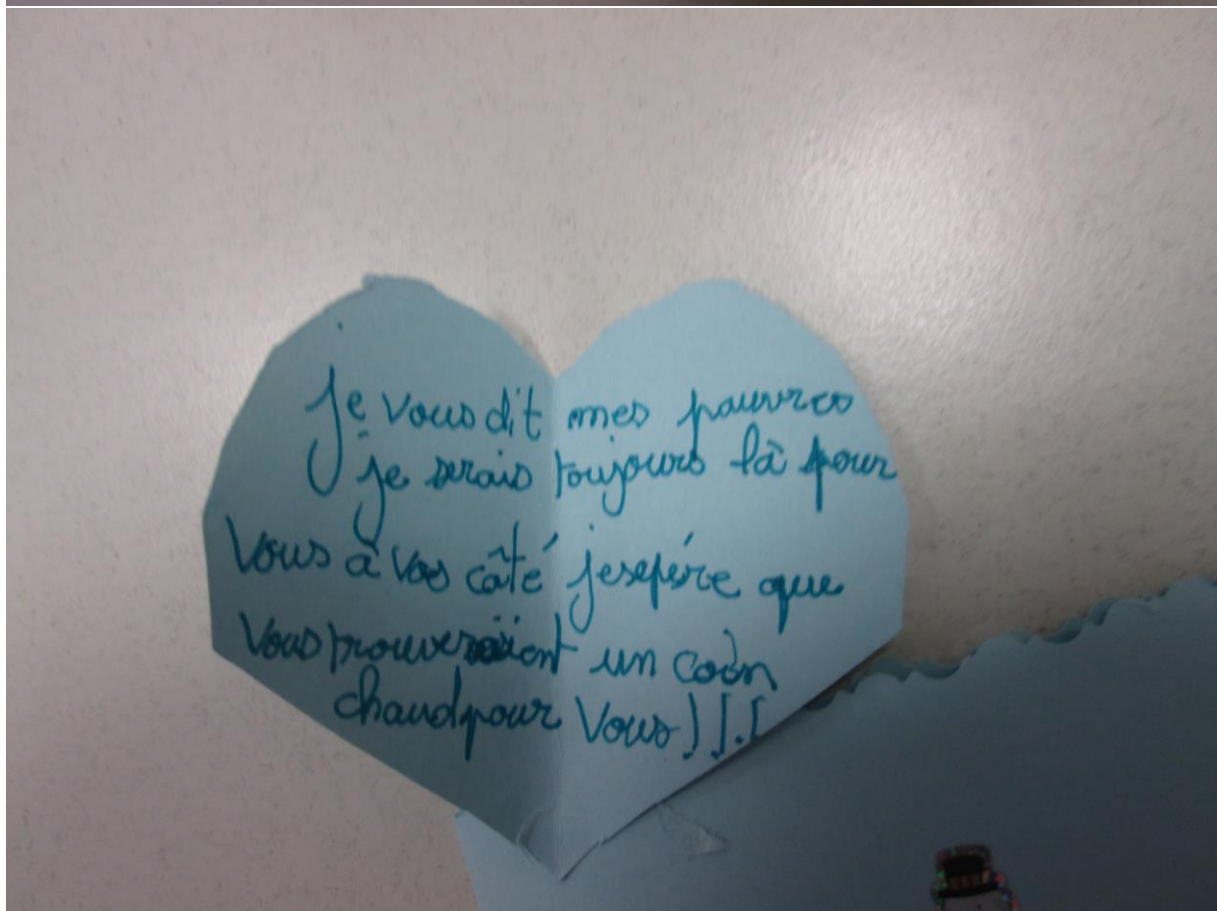 je vous dit mes pauvres
je serais toujours là pour
vous à vos câté jesepére que
vous trouveraiient un coin
chaud pour vous !!.!